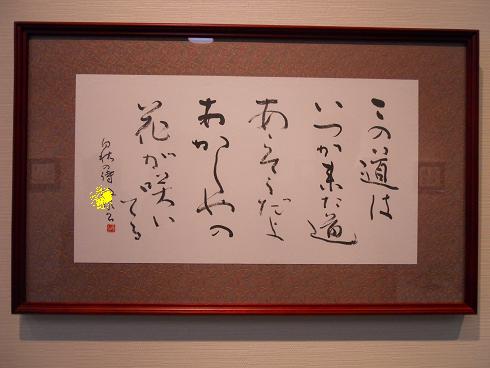 この道は
いつか来た道
あゝそうだよ
あかしやの
花が咲い
てる
白秋の詩